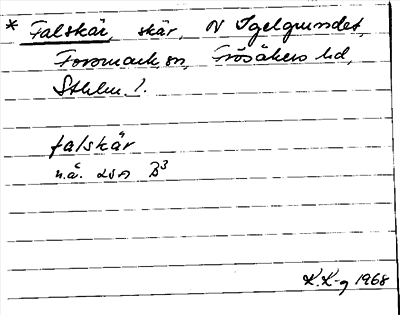 * Falskär, skär, N Igelgrundet,
Forsmark sn, Frösåkers hd,
Sthlm l.
falskär
n.ä. B³
K.K-g 1968